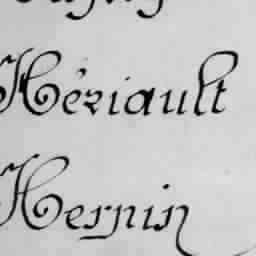 Hériault
Hernin